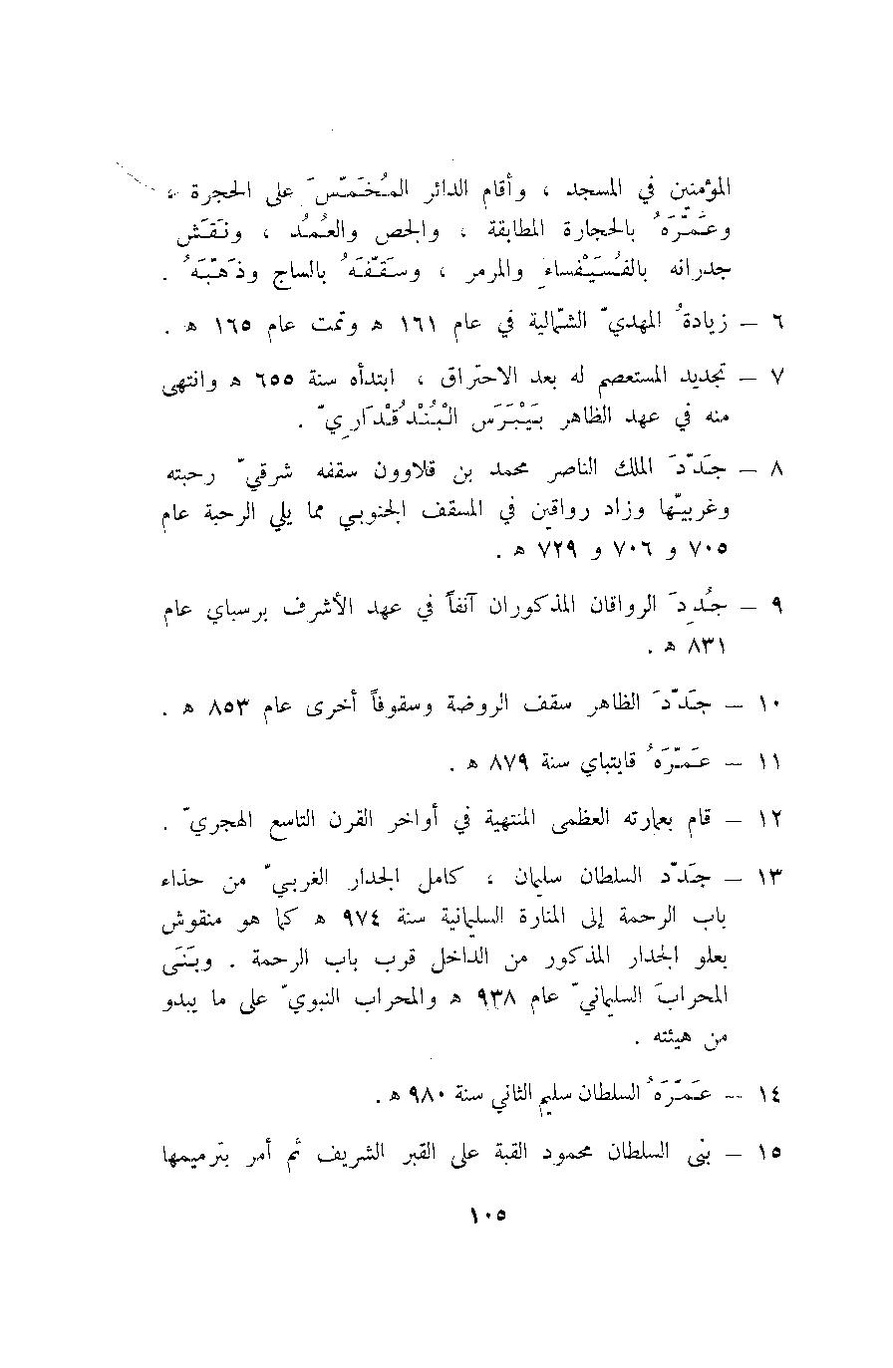 المؤمنين في المسجد ، وأقام الدائر المُخَمَّسَ على الحجرة ،
وعَمَّرَهُ بالحجارة المطابقة ، والجص والعُمُد ، ونَقَش
جدرانه بالفُسَيْفساءِ والمرمر ، وسَقَّفَهُ بالساج وذَهَّبَهُ .
٦ – زيادةُ المهديّ الشّمالية في عام ١٦١ ه وتمت عام ١٦٥ ه .
٧ – تجديد المستعصم له بعد الاحتراق ، ابتدأه سنة ٦٥٥ ه وانتهى
منه في عهد الظاهر بَيْبَرَس الْبُنْدُقْدَارِيّ .
٨ – جَدَّدَ الملك الناصر محمد بن قلاوون سقفه شرقيّ رحبته
وغربيّها وزاد رواقين في المسقف الجنوبي مما يلي الرحبة عام
٧٠٥ و ٧٠٦ و ٧٢٩ ه .
٩ – جُدِدَ الرواقان المذكوران آنفاً في عهد الأشرف برسباي عام
٨٣١ ه .
١٠ – جَدَّدَ الظاهر سقف الروضة وسقوفاً أخرى عام ٨٥٣ ه .
١١ – عَمَّرَهُ قايتباي سنة ٨٧٩ ه .
١٢ – قام بعمارته العظمى المنتهية في أواخر القرن التاسع الهجريّ .
١٣ – جَدَّد السلطان سليمان ، كامل الجدار الغربيّ من حذاء
باب الرحمة إلى المنارة السليمانية سنة ٩٧٤ ه كما هو منقوش
بعلو الجدار المذكور من الداخل قرب باب الرحمة . وبَنَى
المحرابَ السليمانيّ عام ٩٣٨ ه والمحراب النبويّ على ما يبدو
من هيئته .
١٤ – عَمَّرَهُ السلطان سليم الثاني سنة ٩٨٠ ه .
١٥ – بنى السلطان محمود القبة على القبر الشريف ثم أمر بترميمها
١٠٥